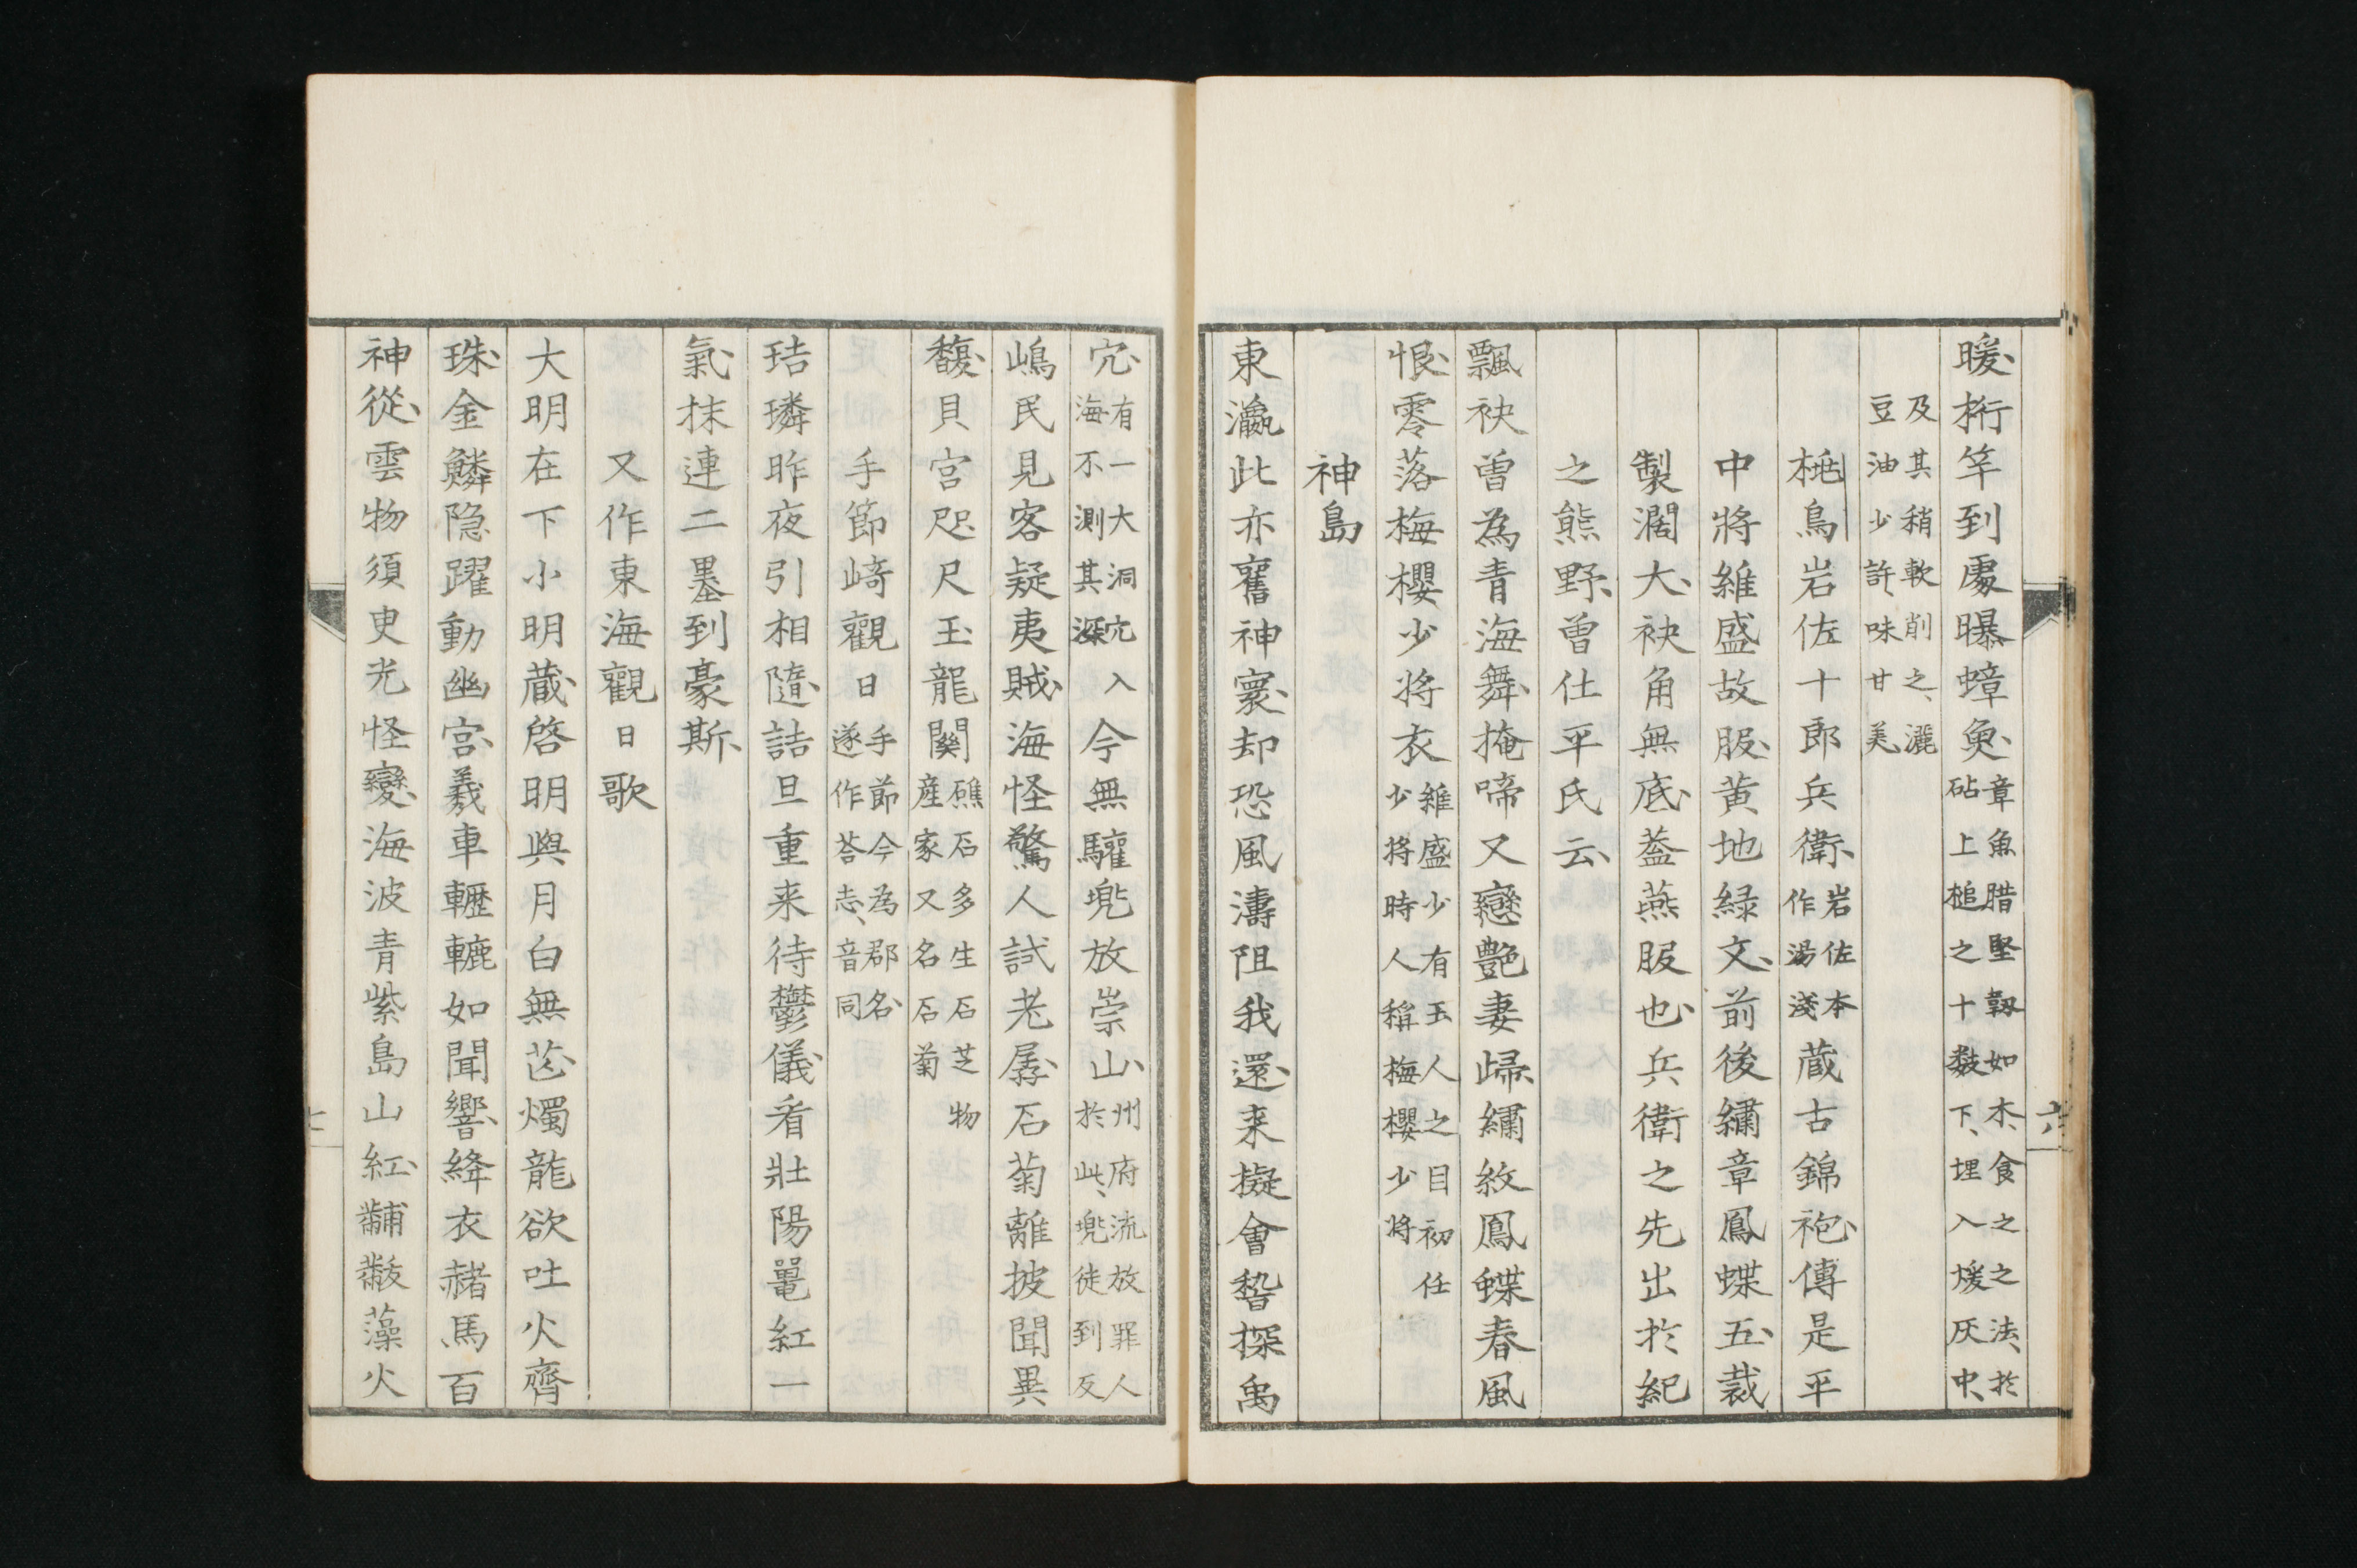 暖、桁竿到處曝蟑魚、章魚腊堅韌如木、食之之法、於砧上槌之十數下、埋入煖灰中、
及其稍軟削之、灑豆油少許、味甘美
桃鳥岩佐十郎兵衛、岩佐本作湯淺蔵古錦袍、傳是平
中將維盛故服、黄地緑文、前後繡章鳳蝶五、裁
製濶大、袂角無底、葢燕服也、兵衛之先出於紀
之熊野、曽仕平氏云、
飄袂曽為青海舞、掩啼又戀艶妻歸、繡紋鳳蝶春風
恨、零落梅櫻少将衣維盛少有玉人之目初任少将時人稱梅櫻少将
神島
東瀛此亦舊神寰、却恐風濤阻我還、来擬會稽探禹
穴、有一大洞穴入海不測其深今無驩兠放崇山、州府流放罪人於此、兠徒到反
嶋民見客疑夷賊、海怪驚人試老孱、石菊離披聞異
馥、貝宮咫尺玉龍關礁石多生石芝物産家又名石菊
手節﨑觀日手節今為郡名遂作荅志、音同
珪璘昨夜引相隨、詰旦重来待鬱儀、看壯陽鼂紅一
氣、抹連二墨到豪斯、
又作東海觀日歌
大明在下小明蔵、啓明與月白無芒、燭龍欲吐火齊
珠、金鱗隐躍動幽宮、羲車轣轆如聞響、絳衣赭馬百
神從、雲物須臾光怪變、海波青紫島山紅、黼黻藻火
六
七